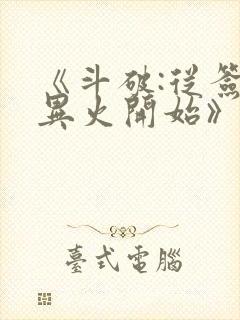 《斗破:從簽
異火開始》
臺式電腦